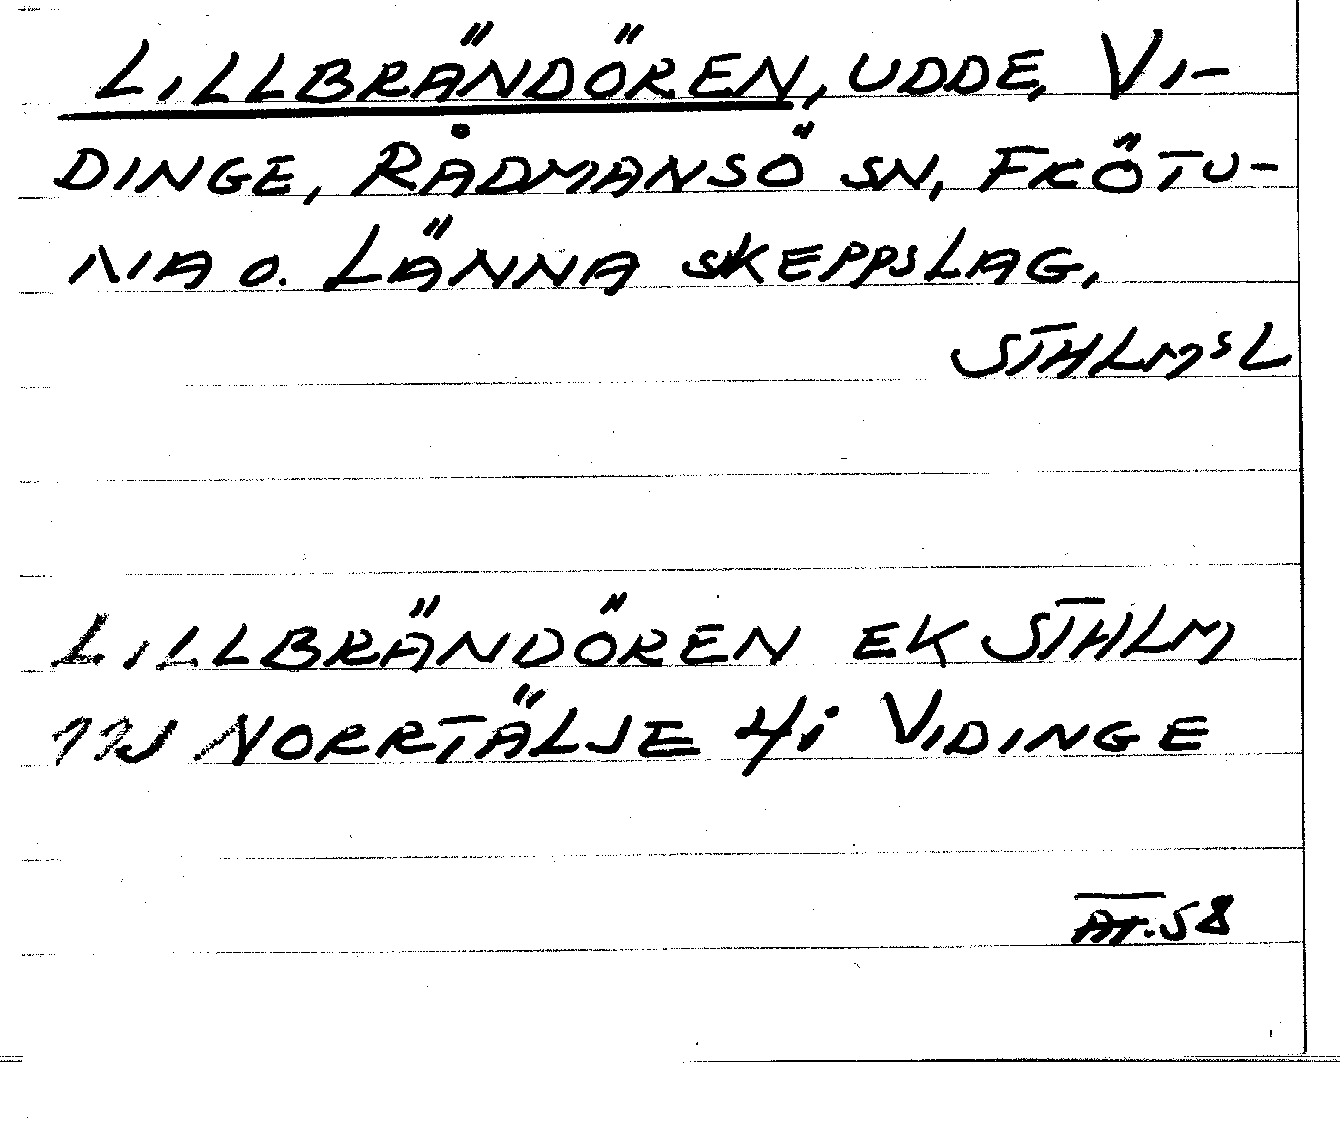 LILLBRÄNDÖREN, UDDE, VI-
DINGE, RÅDMANSÖ SN, FRÖTU-
NA O. LÄNNA SKEPPSLAG,
STHLMSL
LILLBRÄNDÖREN EK STHLM
11J NORRTÄLJE 4i VIDINGE
AT. 58